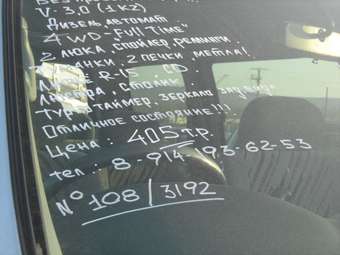 V-3,0 (1KZ)
Дизель, автомат
4WD-"Full Time"
2 люка, спойлер, релинги
2 печки, метла!
R-15 CD
столик
турботаймер, зеркало
Отличное состояние!!!
Цена: 405 т.р.
тел.: 8-914- 93-62-53
№ 108/3192